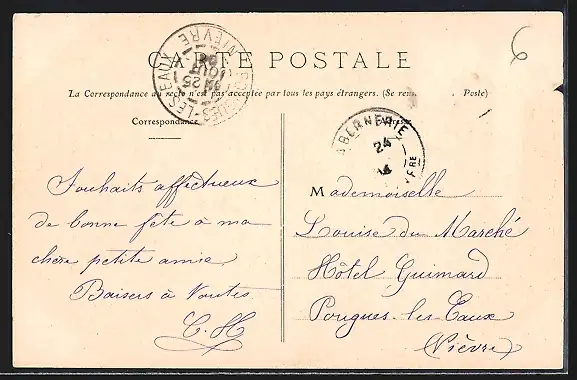 6
CARTE POSTALE
La Correspondance au recto n'est pas acceptée par tous les pays étrangers. (Se rens Poste)
Correspondance
Adresse
POUGUES-LES-EAUX
NIEVRE
25
AOUT
BERNERIE
24
Souhaits affectueux
de bonne fête à ma
chère petite amie
Baisers à Toutes
C. H
Mademoiselle
Louise du Marché
Hôtel Guimard
Pougues-les-Eaux
(Nièvre)